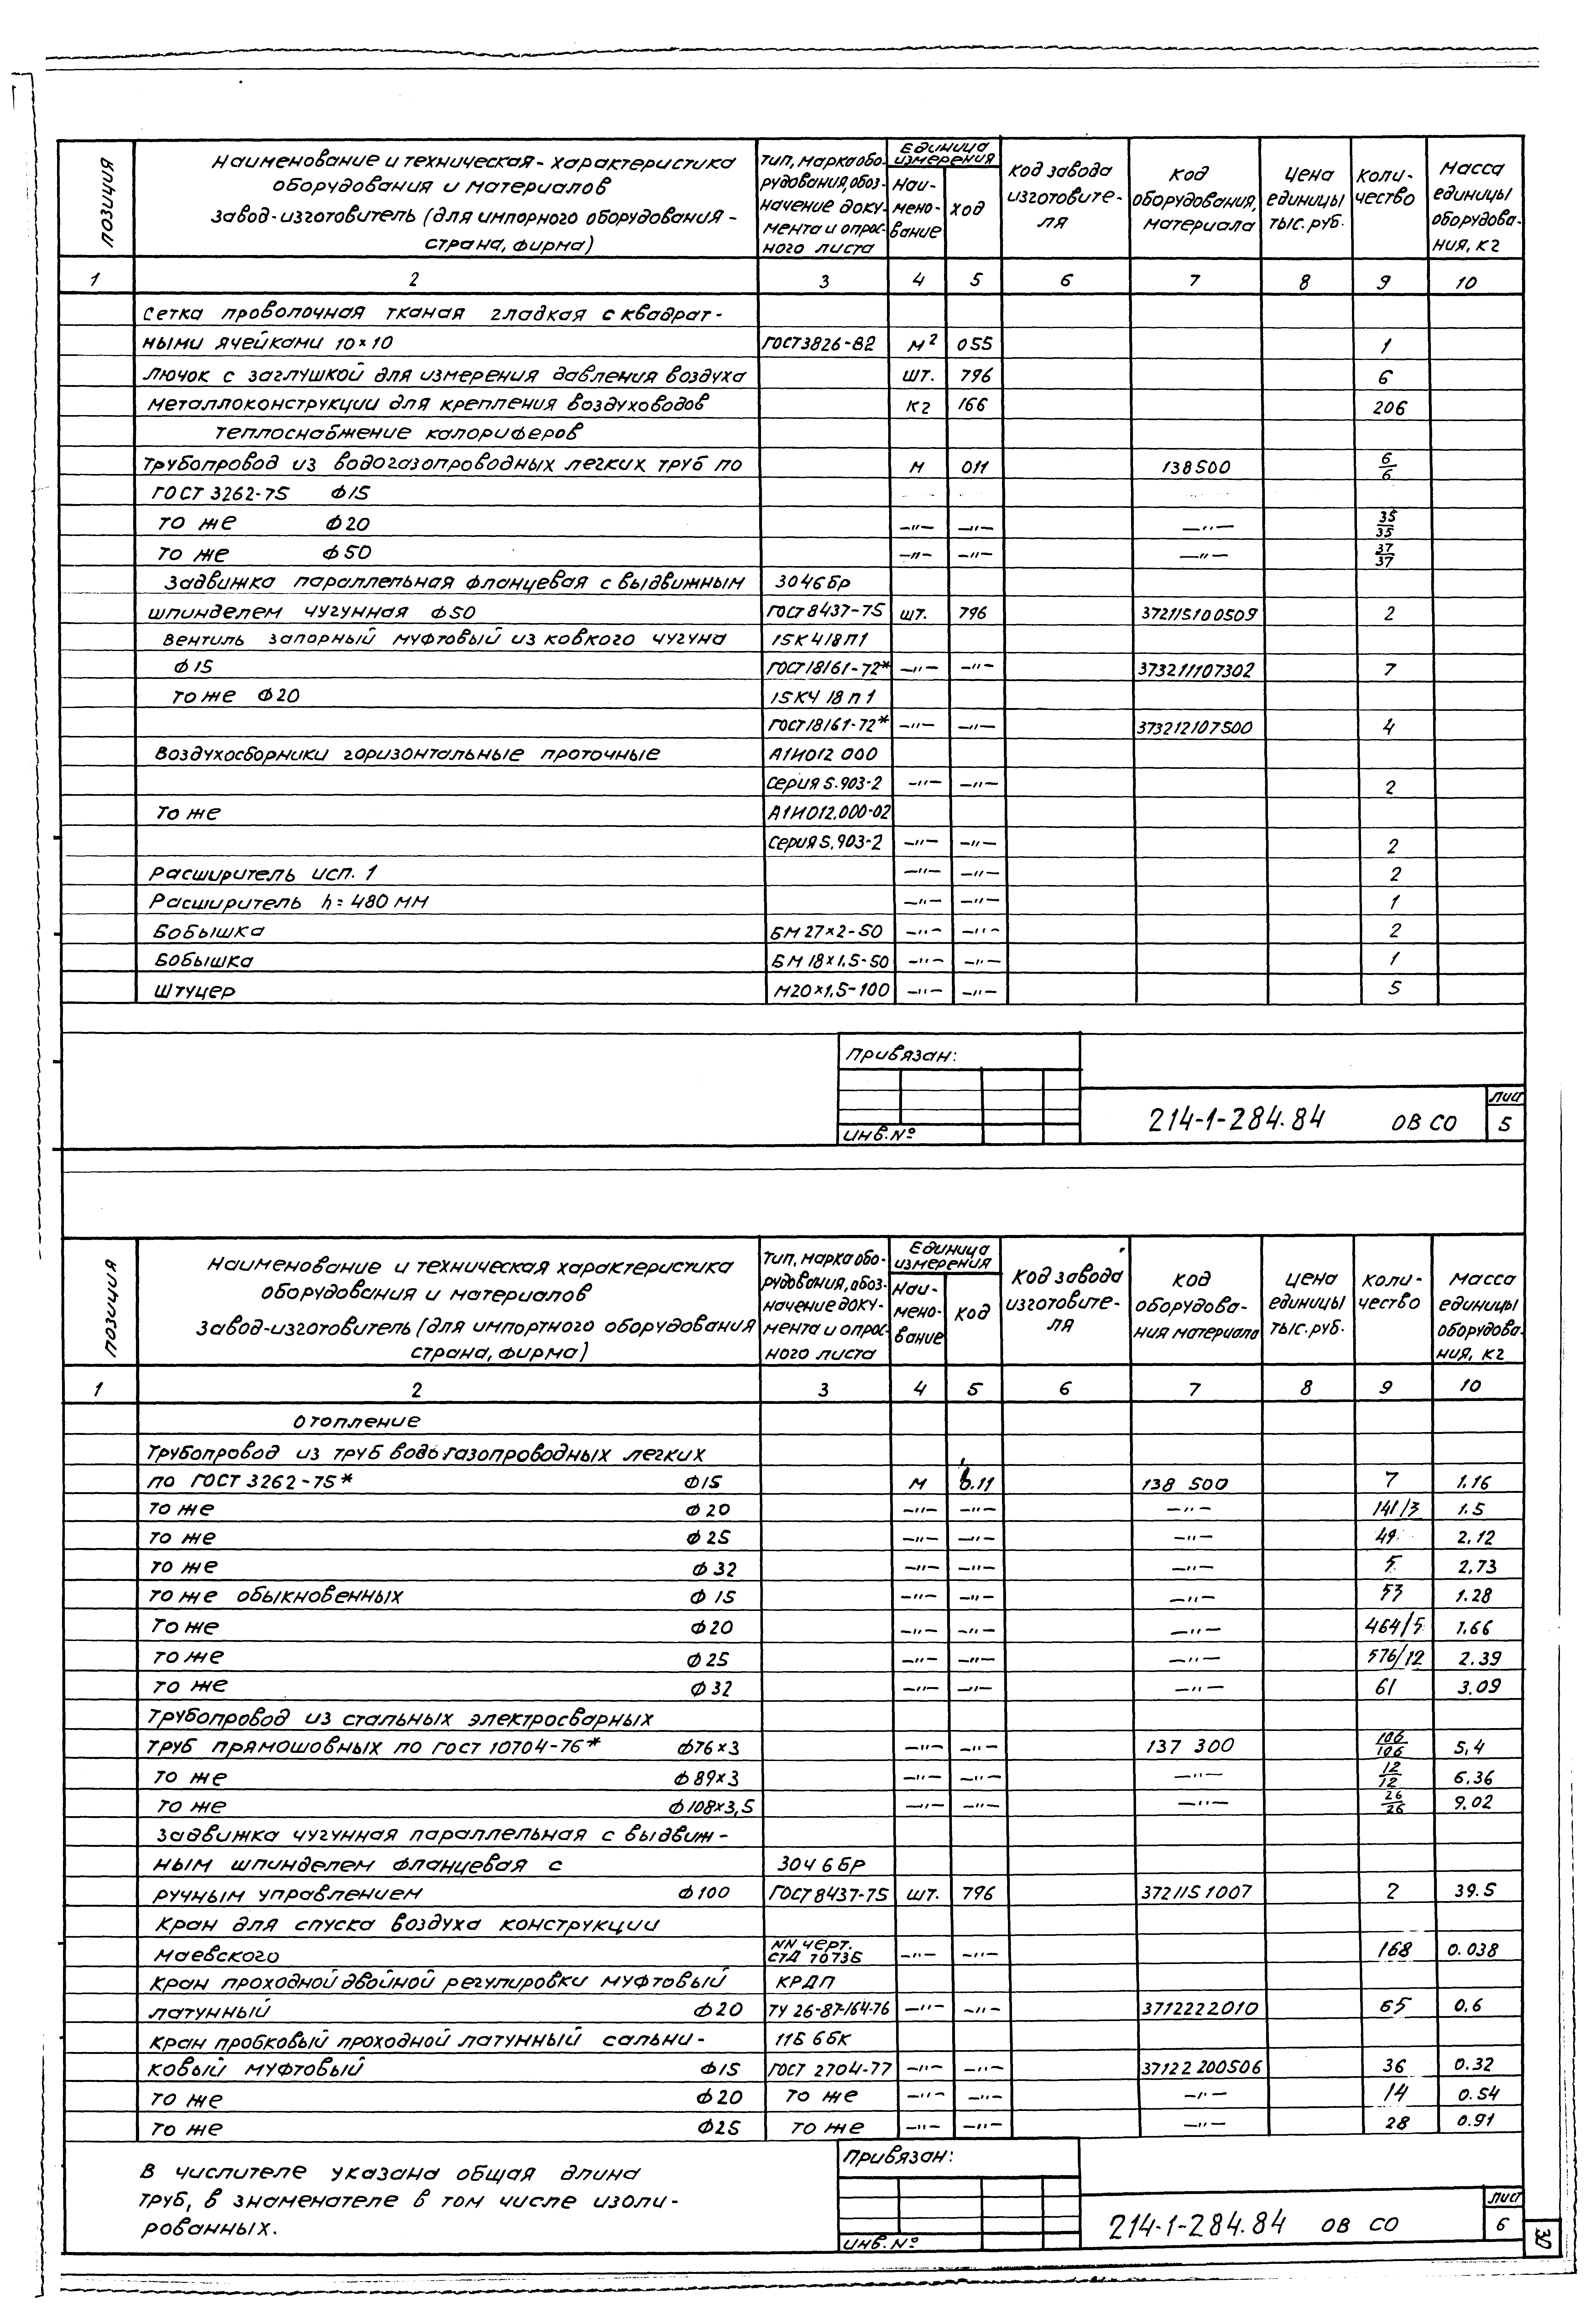 позиция
Наименование и техническая-характеристика
оборудования и материалов
завод-изготовитель (для импорного оборудования -
страна, фирма)
тип, марка обо-
рудования, обоз-
начение доку-
мента и опрос-
ного листа
Единица
измерения
Наи-
мено-
вание
ход
код завода
изготовите-
ля
код
оборудования,
материала
цена
единицы
тыс. руб.
коли-
чество
масса
единицы
оборудова-
ния, кг
1 2 3 4 5 6 7 8 9 10
Сетка проволочная тканая гладкая с квадрат-
ными ячейками 10×10 ГОСТ3826-82 м² 055 1
лючок с заглушкой для измерения давления воздуха шт. 796 6
металлоконструкции для крепления воздуховодов кг 166 206
теплоснабжение калориферов
трубопровод из водогазопроводных легких труб по м 011 138500 6/6
ГОСТ 3262-75 Ф15
то же Ф20 —"— —"— —"— 35/35
то же Ф50 —"— —"— —"— 37/37
задвижка параллельная фланцевая с выдвижным 3046бр
шпинделем чугунная Ф50 ГОСТ8437-75 шт. 796 372115100509 2
вентиль запорный муфтовый из ковкого чугуна 15к418п1
Ф15 ГОСТ18161-72* —"— —"— 373211107302 7
то же Ф20 15кч 18п1
ГОСТ18161-72* —"— —"— 373212107500 4
Воздухосборники горизонтальные проточные А1И012 000
серия 5.903-2 —"— —"— 2
то же А1И012.000-02
серия 5.903-2 —"— —"— 2
Расширитель исп. 1 —"— —"— 2
Расширитель h=480 мм —"— —"— 1
Бобышка БМ 27×2-50 —"— —"— 2
Бобышка БМ 18×1,5-50 —"— —"— 1
Штуцер М20×1,5-100 —"— —"— 5
Привязан:
инв. №
214-1-284.84 ОВ СО
лист
5
позиция
Наименование и техническая характеристика
оборудования и материалов
завод-изготовитель (для импортного оборудования
страна, фирма)
тип, марка обо-
рудования, обоз-
начение доку-
мента и опрос-
ного листа
Единица
измерения
Наи-
мено-
вание
код
код завода
изготовите-
ля
код
оборудова-
ния материала
цена
единицы
тыс. руб.
коли-
чество
масса
единицы
оборудова-
ния, кг
1 2 3 4 5 6 7 8 9 10
Отопление
Трубопровод из труб водогазопроводных легких
по ГОСТ 3262-75* Ф15 м 0.11 138 500 7 1.16
то же Ф20 —"— —"— —"— 141/3 1.5
то же Ф25 —"— —"— —"— 49 2,12
то же Ф32 —"— —"— —"— 5 2,73
то же обыкновенных Ф 15 —"— —"— —"— 53 1.28
то же Ф20 —"— —"— —"— 464/5 1.66
то же Ф25 —"— —"— —"— 576/12 2.39
то же Ф32 —"— —"— —"— 61 3.09
Трубопровод из стальных электросварных
труб прямошовных по ГОСТ 10704-76* Ф76×3 —"— —"— 137 300 106/106 5,4
то же Ф89×3 —"— —"— —"— 12/12 6.36
то же Ф108×3,5 —"— —"— —"— 26/26 9.02
задвижка чугунная параллельная с выдвиж-
ным шпинделем фланцевая с 304 6бр
ручным управлением Ф100 ГОСТ8437-75 шт. 796 372115 1007 2 39.5
Кран для спуска воздуха конструкции
Маевского NN черт. СТД 7073Б —"— —"— 168 0.038
Кран проходной двойной регулировки муфтовый КРДП
латунный Ф20 ТУ 26-87-164-76 —"— —"— 3712222010 65 0.6
Кран пробковый проходной латунный сальни- 11Б 6БК
ковый муфтовый Ф15 ГОСТ 2704-77 —"— —"— 37122 200506 36 0.32
то же Ф20 то же —"— —"— —"— 14 0.54
то же Ф25 то же —"— —"— —"— 28 0.91
В числителе указана общая длина
труб, в знаменателе в том числе изоли-
рованных.
Привязан:
инв. №
214-1-284.84 ОВ СО
лист
6
30